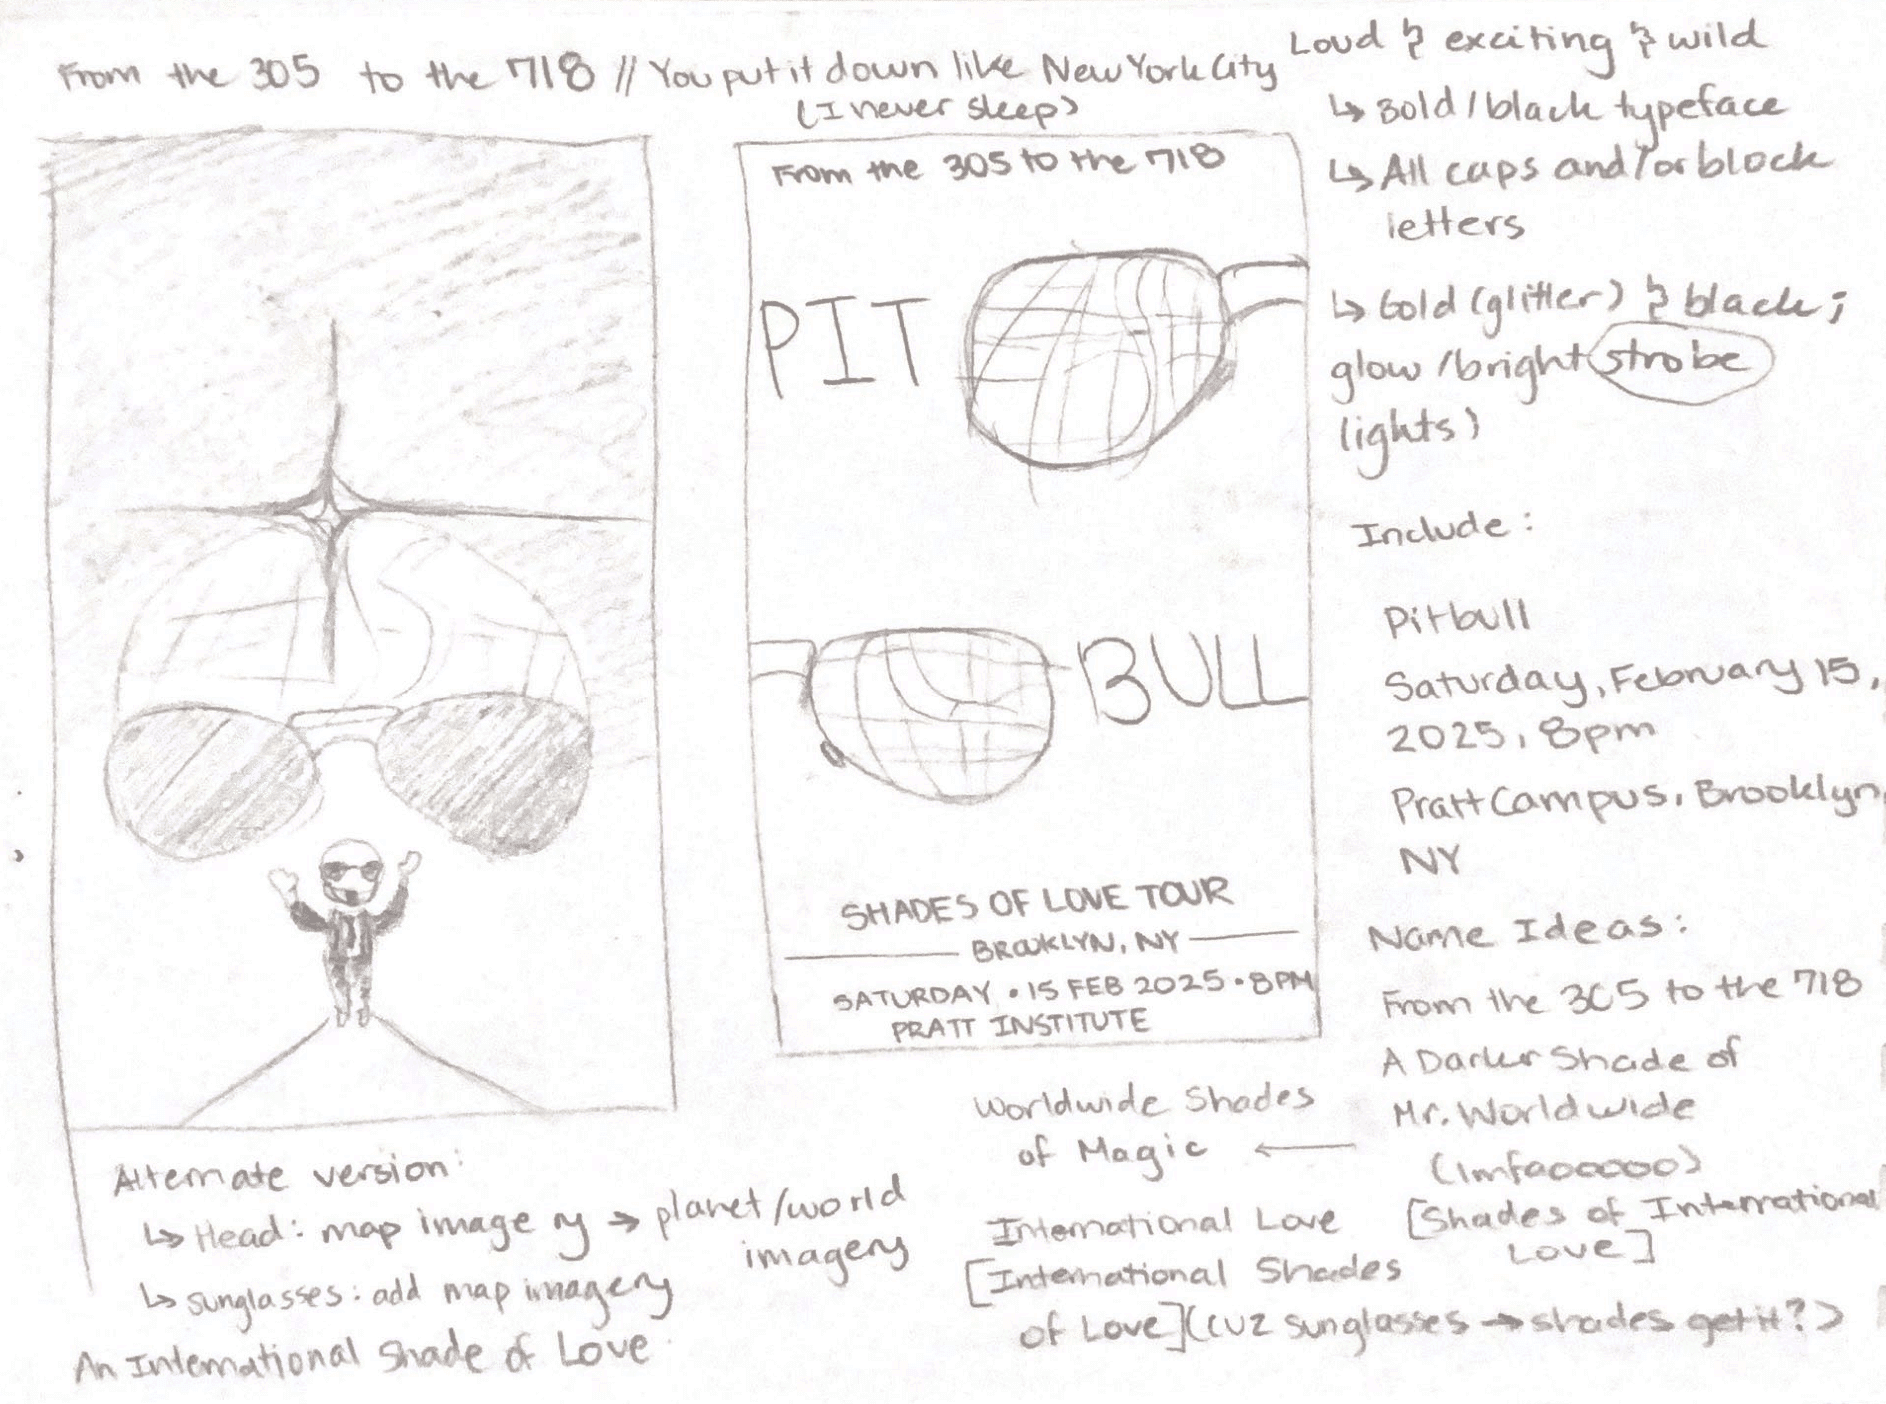 From the 305 to the 718 // You put it down like New York City
(I never sleep)
Loud & exciting & wild
↳ Bold/black typeface
↳ All caps and/or block
letters
↳ Gold (glitter) & black;
glow/bright strobe
lights)
Include:
Pitbull
Saturday, February 15,
2025, 8pm
Pratt Campus, Brooklyn,
NY
Name Ideas:
From the 305 to the 718
A Darker Shade of
Mr. Worldwide
(lmfaooooo)
[Shades of International
Love]
From the 305 to the 718
PIT
BULL
SHADES OF LOVE TOUR
BROOKLYN, NY
SATURDAY • 15 FEB 2025 • 8PM
PRATT INSTITUTE
Worldwide Shades
of Magic ←
International Love
[International Shades
of Love] (cuz sunglasses → shades get it?)
Alternate version:
↳ Head: map imagery → planet/world
imagery
↳ sunglasses: add map imagery
An International Shade of Love